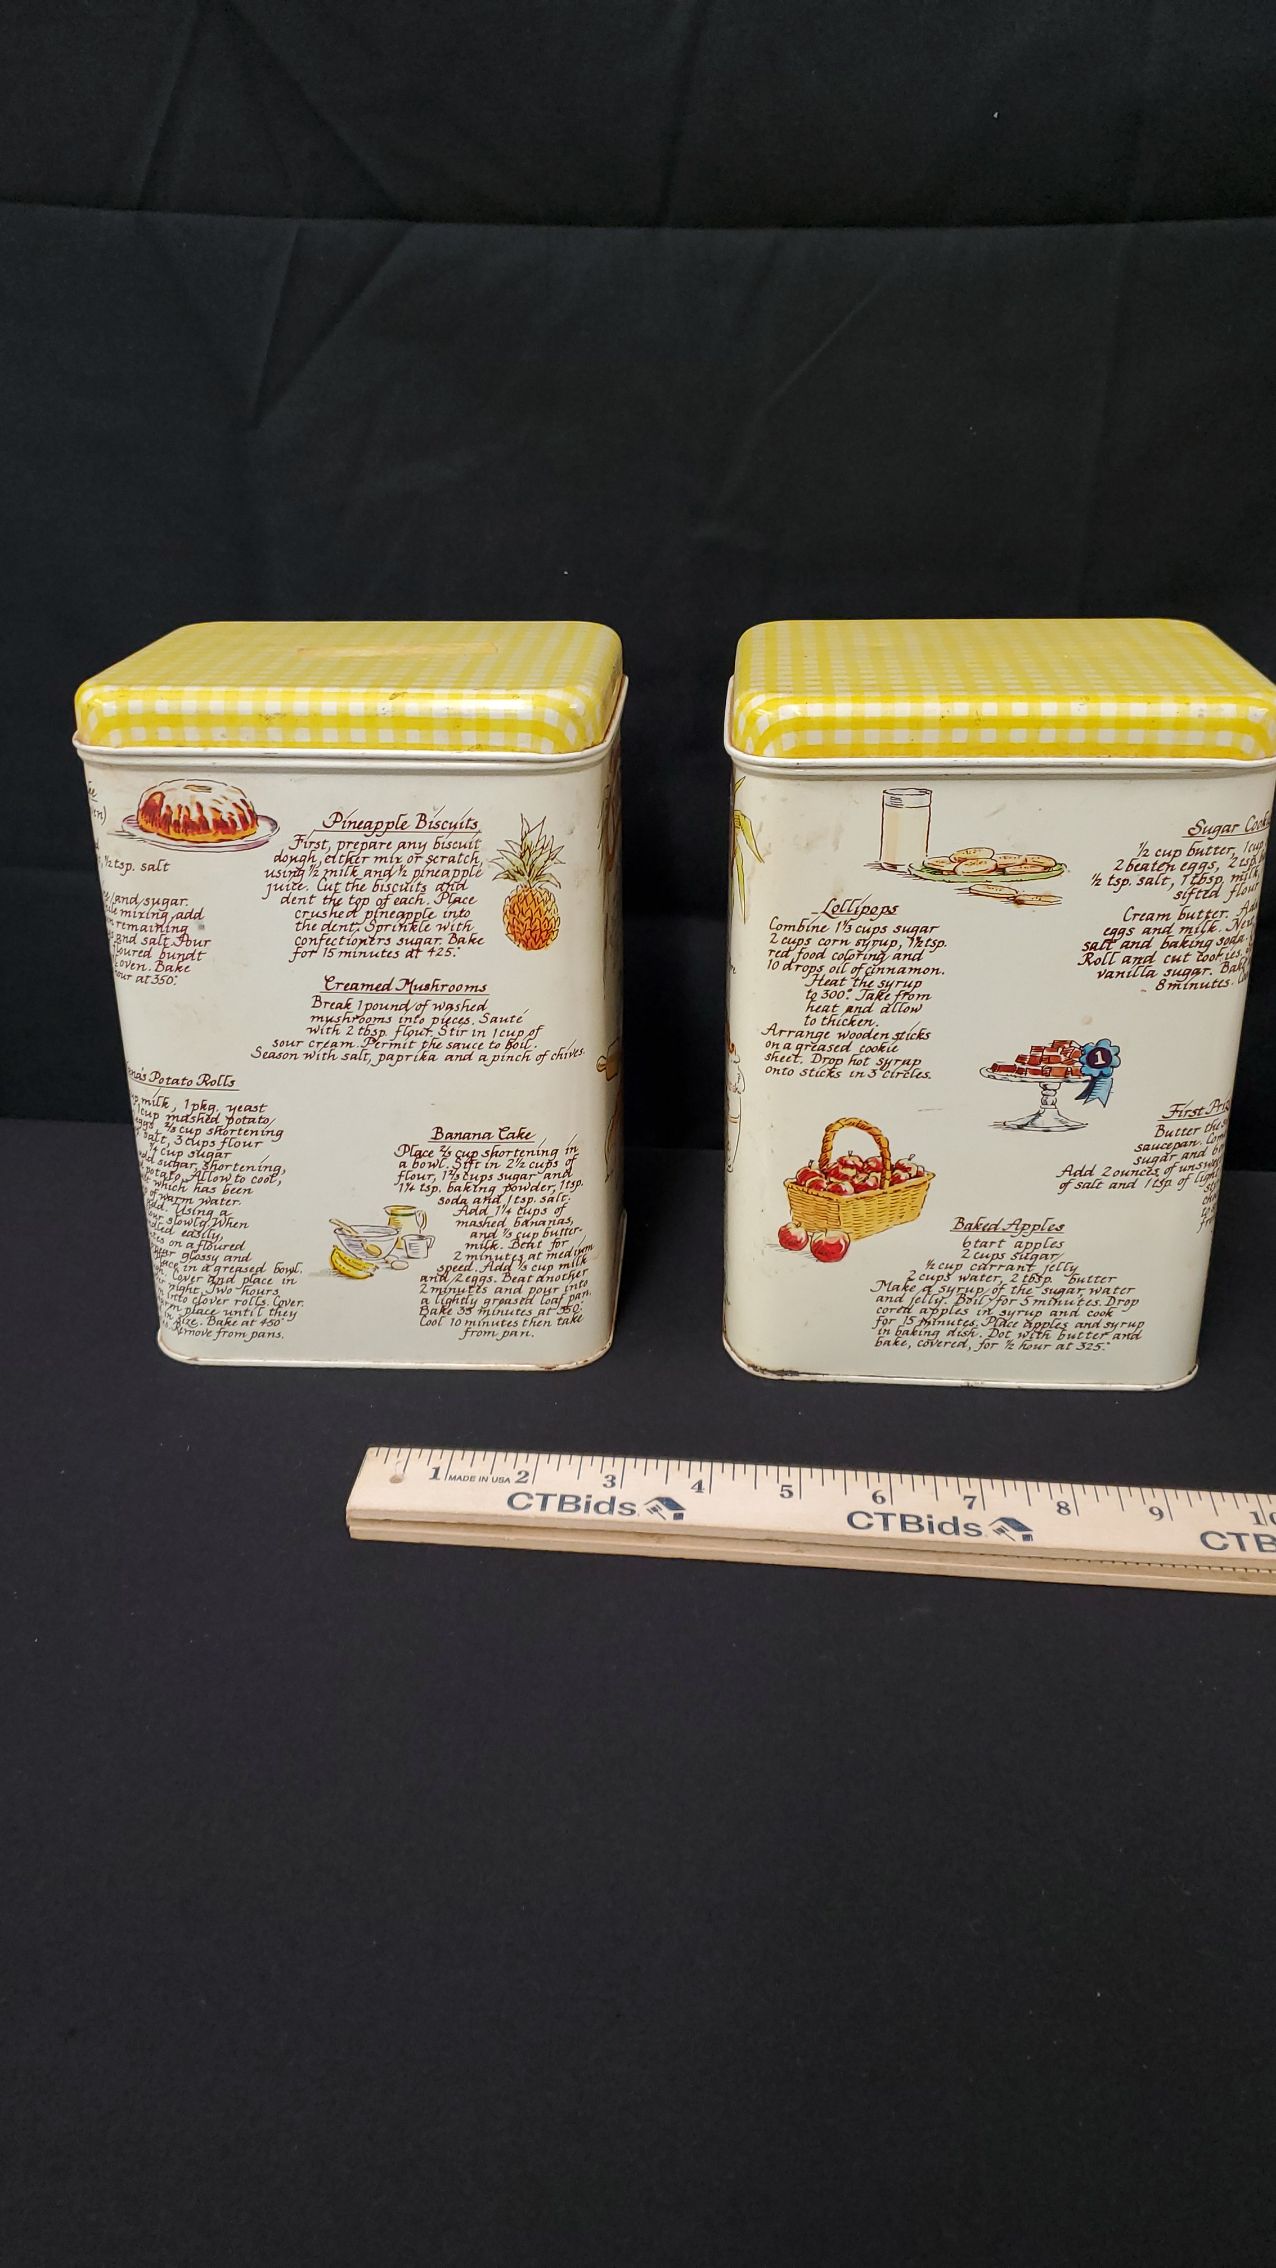 ½ tsp. salt
and sugar.
mixing, add
remaining
and salt. Pour
floured bundt
oven. Bake
hour at 350°.
Pineapple Biscuits
First, prepare any biscuit
dough, either mix or scratch,
using ½ milk and ½ pineapple
juice. Cut the biscuits and
dent the top of each. Place
crushed pineapple into
the dent. Sprinkle with
confectioners sugar. Bake
for 15 minutes at 425°.
Creamed Mushrooms
Break 1 pound of washed
mushrooms into pieces. Sauté
with 2 tbsp. flour. Stir in 1 cup of
sour cream. Permit the sauce to boil.
Season with salt, paprika and a pinch of chives.
Potato Rolls
milk, 1 pkg. yeast
1 cup mashed potato
eggs, ⅔ cup shortening
salt, 3 cups flour
¼ cup sugar
add sugar, shortening,
potato. Allow to cool,
which has been
of warm water.
Add. Using a
slowly. When
easily,
on a floured
glossy and
place in a greased bowl.
Cover and place in
night. Two hours
into clover rolls. Cover
place until they
size. Bake at 450°
Remove from pans.
Banana Cake
Place ⅔ cup shortening in
a bowl. Sift in 2½ cups of
flour, 1⅔ cups sugar and
1¼ tsp. baking powder, 1 tsp.
soda and 1 tsp. salt.
Add 1¼ cups of
mashed bananas,
and ⅓ cup butter-
milk. Beat for
2 minutes at medium
speed. Add ⅓ cup milk
and 2 eggs. Beat another
2 minutes and pour into
a lightly greased loaf pan.
Bake 35 minutes at 350°.
Cool 10 minutes then take
from pan.
Sugar
½ cup butter, 1 cup
2 beaten eggs, 2 tsp.
½ tsp. salt, 1 tbsp. milk,
sifted flour
Cream butter.
eggs and milk.
salt and baking soda.
Roll and cut cookies.
vanilla sugar.
8 minutes.
Lollipops
Combine 1⅓ cups sugar
2 cups corn syrup, 1½ tsp.
red food coloring and
10 drops oil of cinnamon.
Heat the syrup
to 300°. Take from
heat and allow
to thicken.
Arrange wooden sticks
on a greased cookie
sheet. Drop hot syrup
onto sticks in 3" circles.
1
First
Butter the
saucepan.
sugar and
Add 2 ounces of
of salt and 1 tsp. of light
Baked Apples
6 tart apples
2 cups sugar
½ cup currant jelly
2 cups water, 2 tbsp. butter
Make a syrup of the sugar water
and jelly. Boil for 5 minutes. Drop
cored apples in syrup and cook
for 15 minutes. Place apples and syrup
in baking dish. Dot with butter and
bake, covered, for ½ hour at 325°.
1 MADE IN USA 2 3 4 5 6 7 8 9 10
CTBids CTBids CTB